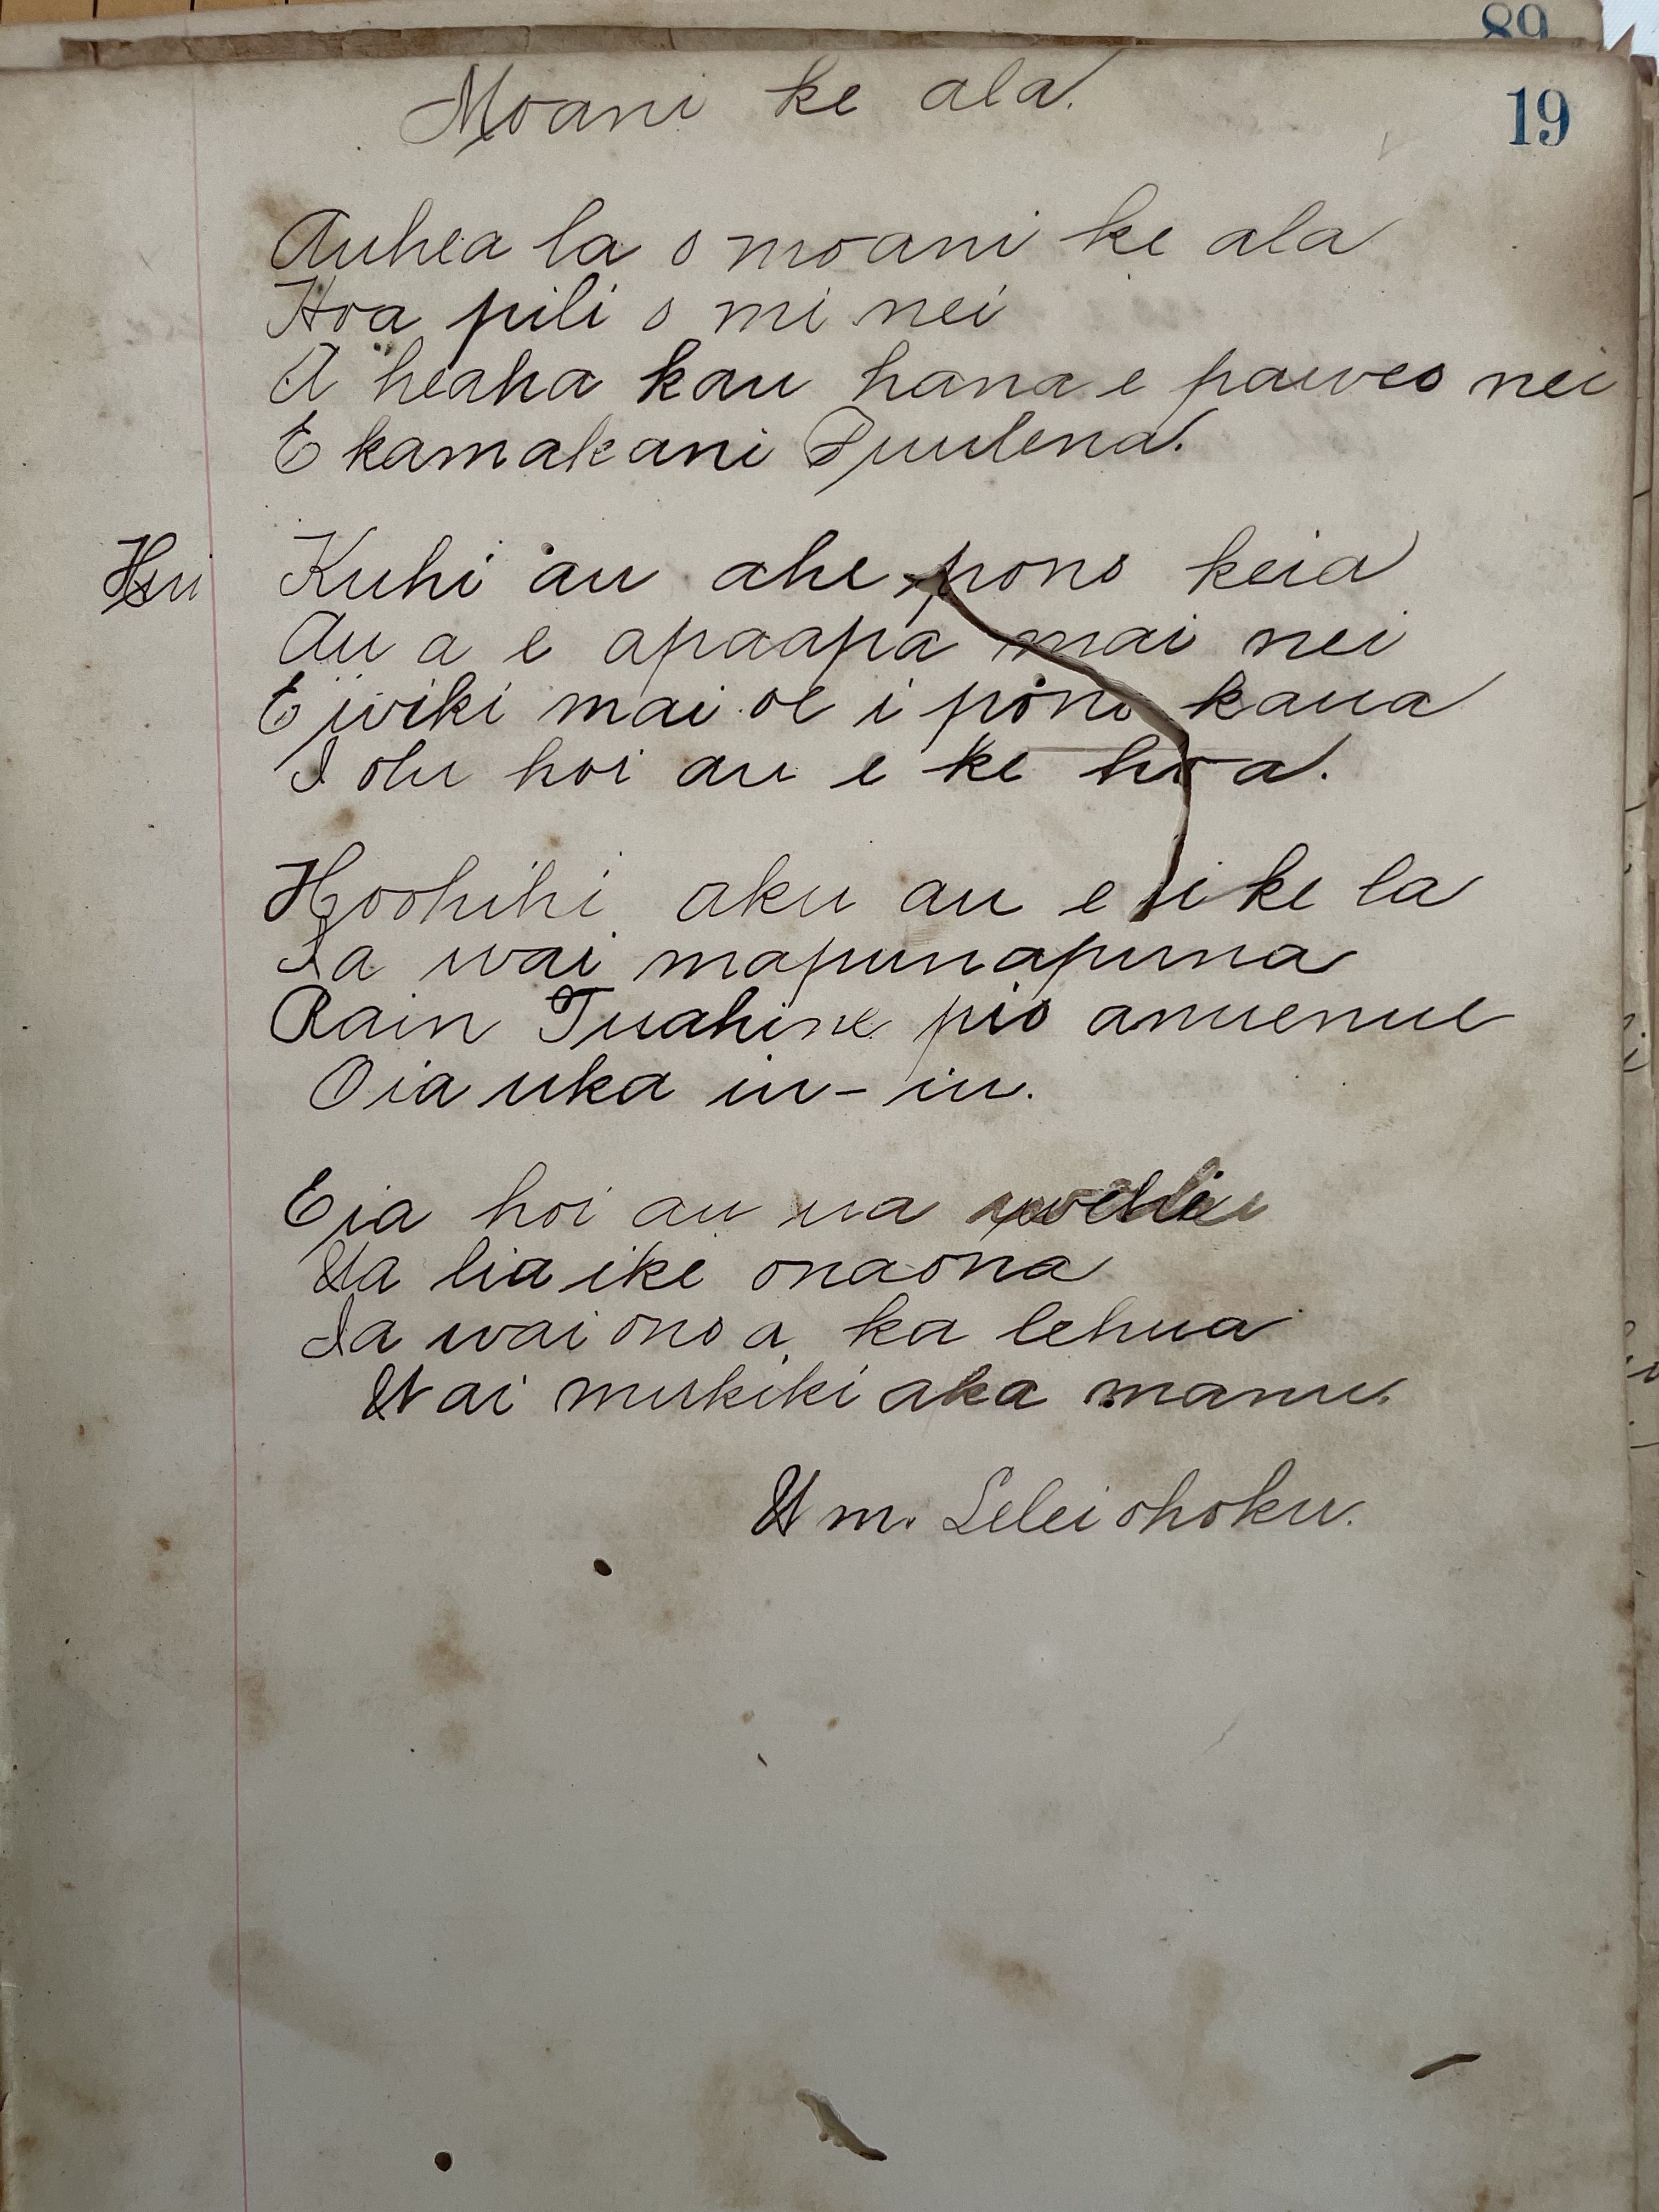 89
19
Moani ke ala.
Auhea la o moani ke ala
Hoa pili o mi nei
A heaha kau hana e paweo nei
E kamakani Puulena.
Hui Kuhi au ahe pono keia
Au a e apaapa mai nei
E wiki mai oe i pono kaua
I olu hoi au e ke hoa.
Hoohihi aku au e ike la
Ia wai mapunapuna
Rain Tuahine pio anuenue
O ia uka iu-iu.
Eia hoi au ua
Ua lia ike onaona
Ia wai ono a ka lehua
Wai mukiki aka manu.
Wm. Leleiohoku.